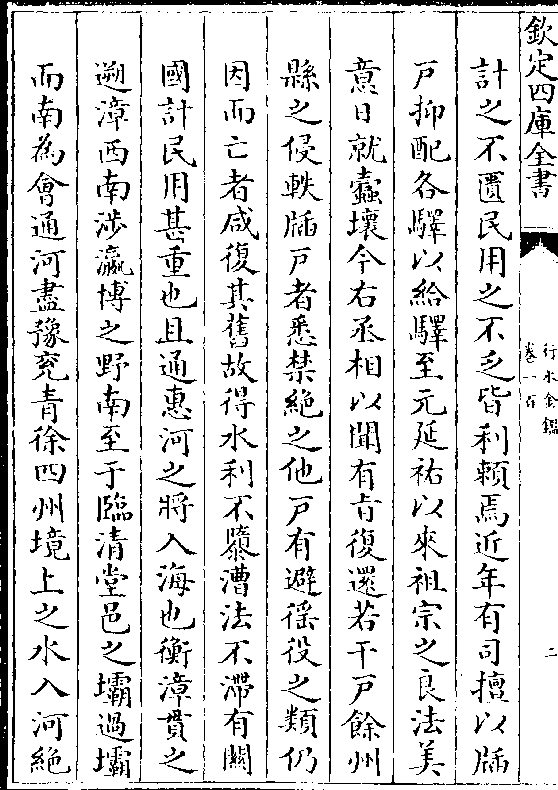 欽定四庫全書
行水金鑑
卷一百
二
計之不匱民用之不乏皆利賴焉近年有司擅以牐
戸抑配各驛以給驛至元延祐以來祖宗之良法美
意日就蠧壞今右丞相以聞有㫖復還若干戸餘州
縣之侵軼牐戸者悉禁絶之他戸有避徭役之類仍
因而亡者咸復其舊故得水利不隳漕法不滯有關
國計民用甚重也且通惠河之將入海也衡漳貫之
遡漳西南渉瀛博之野南至于臨清堂邑之壩過壩
而南為㑹通河盡豫兖青徐四州境上之水入河絶